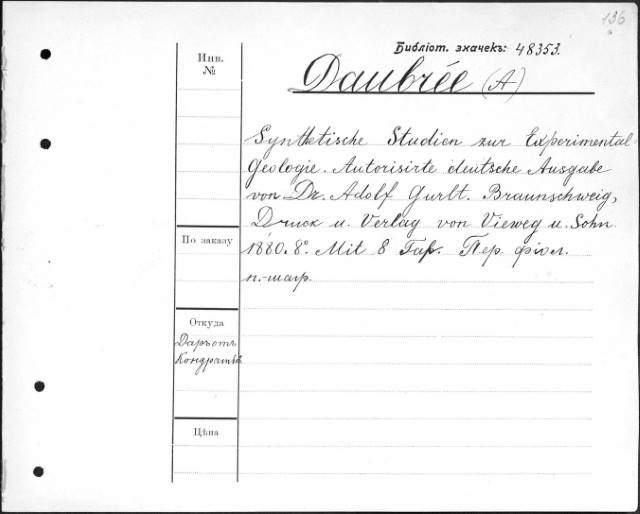 136
Библіот. значекъ: 48353.
Инв.
№
Daubrée (A)
Synthetische Studien zur Experimental-
Geologie. Autorisirte deutsche Ausgabe
von Dr. Adolf Gurlt. Braunschweig,
Druck u. Verlag von Vieweg u. Sohn
1880. 8°. Mit 8 Taf. Пер. фіол.
п.-шагр.
По заказу
Откуда
Даръ отъ
Цѣна